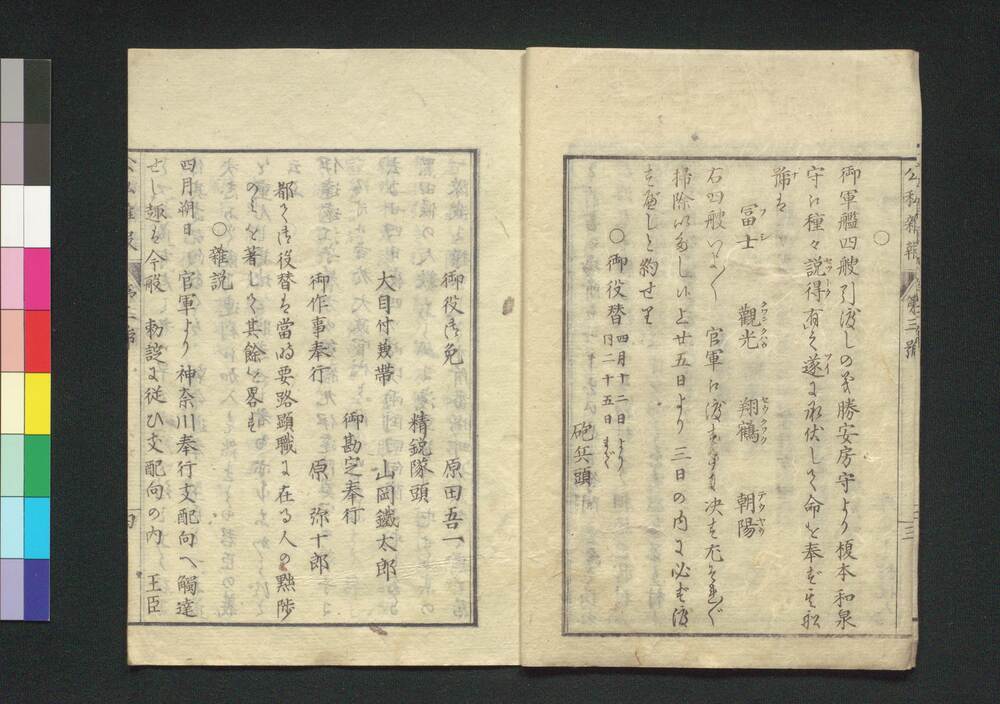 公私雑報 第三號
○
御軍艦四艘引渡しの義勝安房守より榎本和泉
守に種々説得有て遂に承伏して命を奉ず其船
號は
冨士 觀光 翔鶴 朝陽
フシ クワンクワウ セウカク テウヤウ
右四艘いよ〱官軍に渡す
掃除いたし候上廿五日より三日の内に必ず渡
すべしと約せり
○御役替 四月十二日より
同二十五日まで
砲兵頭
御役御免 原田吾一
精鋭隊頭
大目付兼帶 山岡鐵太郎
御勘定奉行
御作事奉行 原弥十郎
都て御役替は當時要路顕職に在る人の黜陟
のみを著して其餘を畧す
○雑説
四月朔日 官軍より神奈川奉行支配向へ觸達
せし趣は今般 勅諚に從ひ支配向の内 王臣